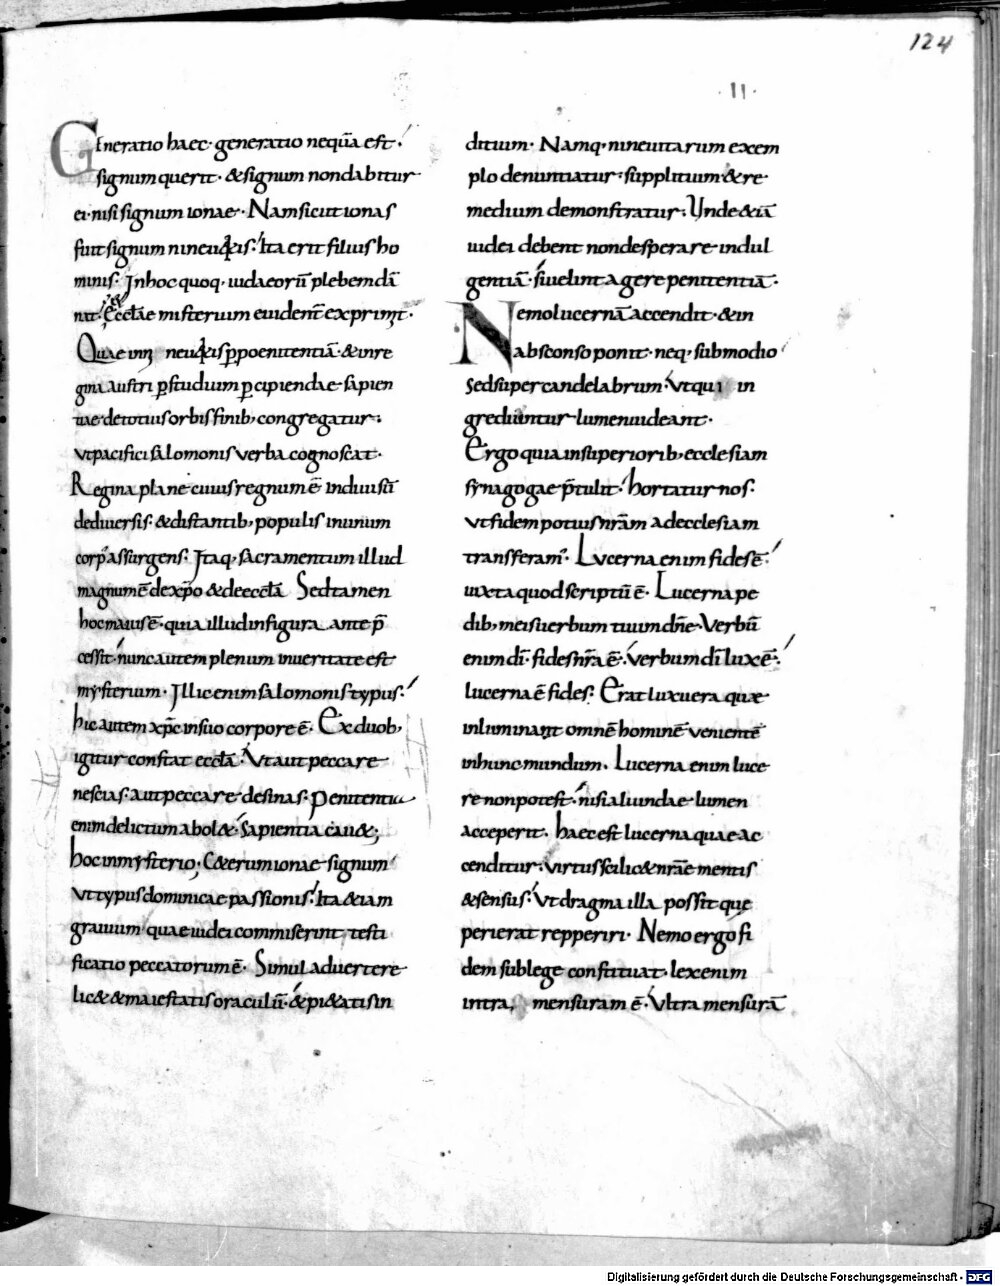 124
II
Generatio haec· generatio nequā est·
signum querit· & signum non dabitur
ei· nisi signum ionae· Nam sicut ionas
fuit signum nineu&is· Ita erit filius ho
minis· In hoc quoq· iudaeorū plebem dā
nat· & Eccłae misterium euident̄ exprimit·
Quae in nineu&is p̱ poenitentiā· & in re
gina austri p̱ studium p̱cipiendae sapien
tiae· de totius orbis finib; congregatur·
ut pacifici salomonis verba cognoscat·
Regina plane cuius regnum ē indiuisū
de diuersis· & distantib; populis in unum
corp' assurgens· Itaq; sacramentum illud
magnum ē de xp̄o & de eccła Sed tamen
hoc maius ē· quia illud in figura ante p̄
cessit· nunc autem plenum in ueritate est
mysterium· Illic enim salomonis typus·
hic autem xp̄c in suo corpore ē· Ex duob;
igitur constat eccła· Ut aut peccare
nescias· aut peccare desinas· Penitentia
enim delictum abol&· Sapientia cau&;
hoc in mysterio, C&erum ionae signum
ut typus dominicae passionis· Ita &iam
grauium quae iudei commiserint testi
ficatio peccatorum ē· Simul aduertere
lic& & maiestatis oraculū· & pi&atis in
ditium· Namq· nineuitarum exem
plo denuntiatur supplitium & re
medium demonstratur· Unde &iā
iudei debent non desperare indul
gentiā· si uelint agere penitentiā·
Nemo lucernā accendit· & in
absconso ponit· neq· sub modio
Sed super candelabrum· Ut qui in
grediuntur lumen uideant·
Ergo quia in superiorib; ecclesiam
synagogae p̄tulit· hortatur nos·
ut fidem potius nr̄am ad ecclesiam
transferam'· Lucerna enim fides ē·
iuxta quod scriptū ē· Lucerna pe
dib; meis uerbum tuum dn̄e· Verbū
enim dī· fides nr̄a ē· Verbum dī lux ē·
lucerna ē fides· Erat lux uera quae
inluminat omnē hominē venientē
in hunc mundum· Lucerna enim luce
re non potest· nisi aliunde lumen
acceperit· haec est lucerna quae ac
cenditur· virtus scilic& nr̄ae mentis
& sensus· Ut dragma illa possit que
perierat repperiri· Nemo ergo fi
dem sub lege constituat· lex enim
intra mensuram ē· Ultra mensurā
Digitalisierung gefördert durch die Deutsche Forschungsgemeinschaft - DFG